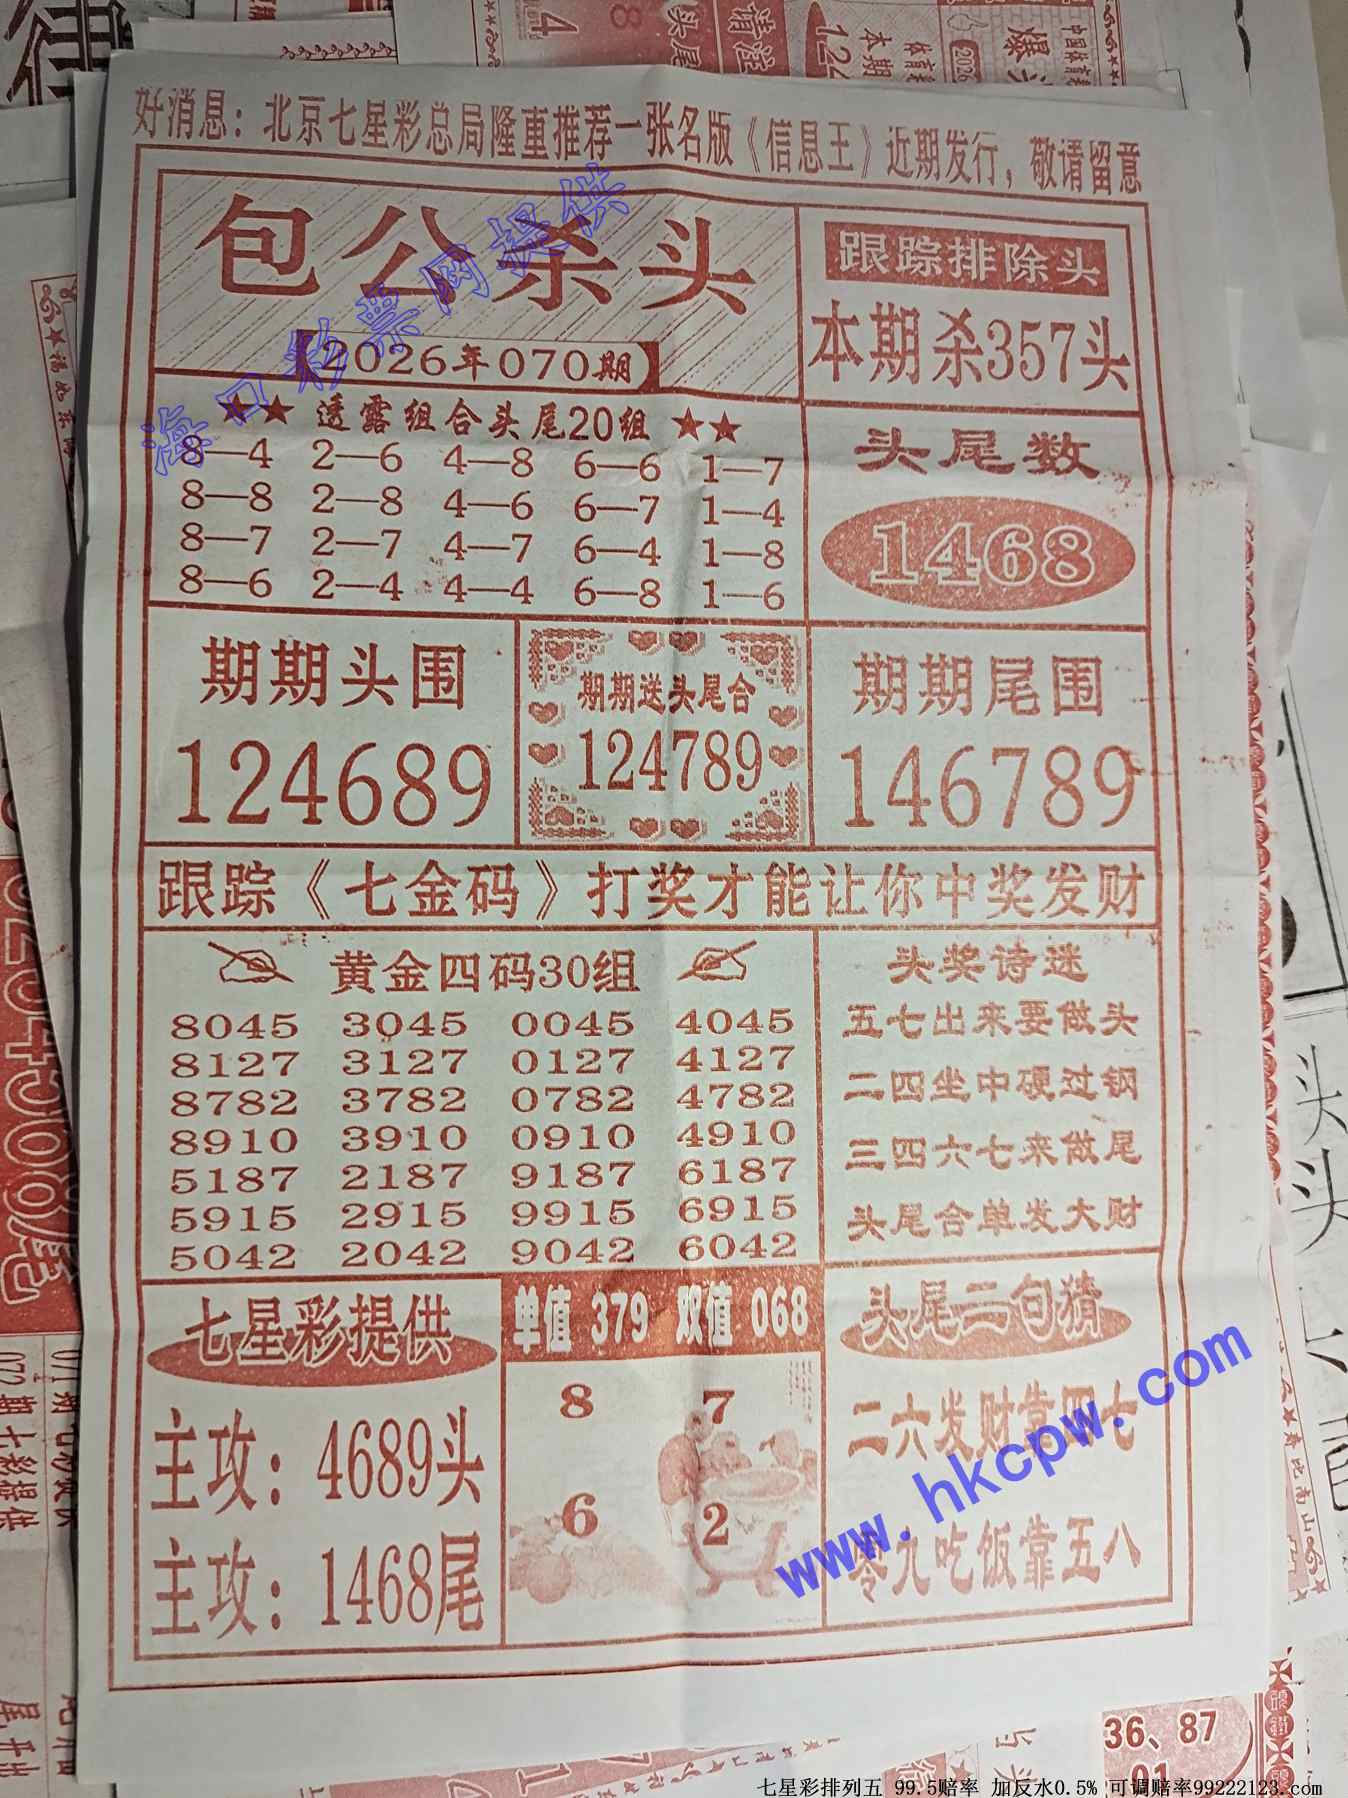 好消息：北京七星彩总局隆重推荐一张名版《信息王》近期发行，敬请留意
包公杀头
【2026年070期】
跟踪排除头
本期杀357头
★★ 透露组合头尾20组 ★★
8—4 2—6 4—8 6—6 1—7
8—8 2—8 4—6 6—7 1—4
8—7 2—7 4—7 6—4 1—8
8—6 2—4 4—4 6—8 1—6
头尾数
1468
期期头围
124689
期期送头尾合
124789
期期尾围
146789
跟踪《七金码》打奖才能让你中奖发财
黄金四码30组
8045 3045 0045 4045
8127 3127 0127 4127
8782 3782 0782 4782
8910 3910 0910 4910
5187 2187 9187 6187
5915 2915 9915 6915
5042 2042 9042 6042
头奖诗迷
五七出来要做头
二四坐中硬过钢
三四六七来做尾
头尾合单发大财
七星彩提供
主攻：4689头
主攻：1468尾
单值 379 双值 068
8 7
6 2
头尾二句猜
二六发财靠四七
零九吃饭靠五八
海口彩票网提供
www.hkcpw.com
36、87
01
七星彩排列五 99.5赔率 加反水0.5% 可调赔率99222123.com